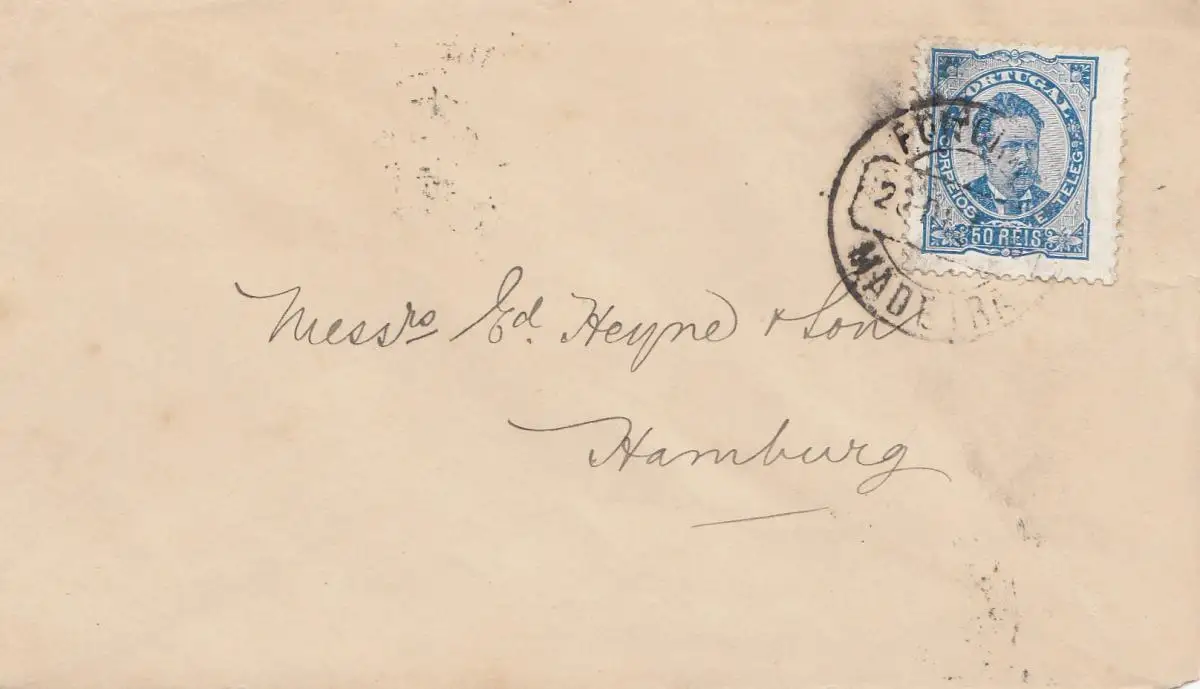 PORTUGAL
CORREIOS E TELEG
50 REIS
MADEIRA
Messrs Ed. Heyne & Son
Hamburg